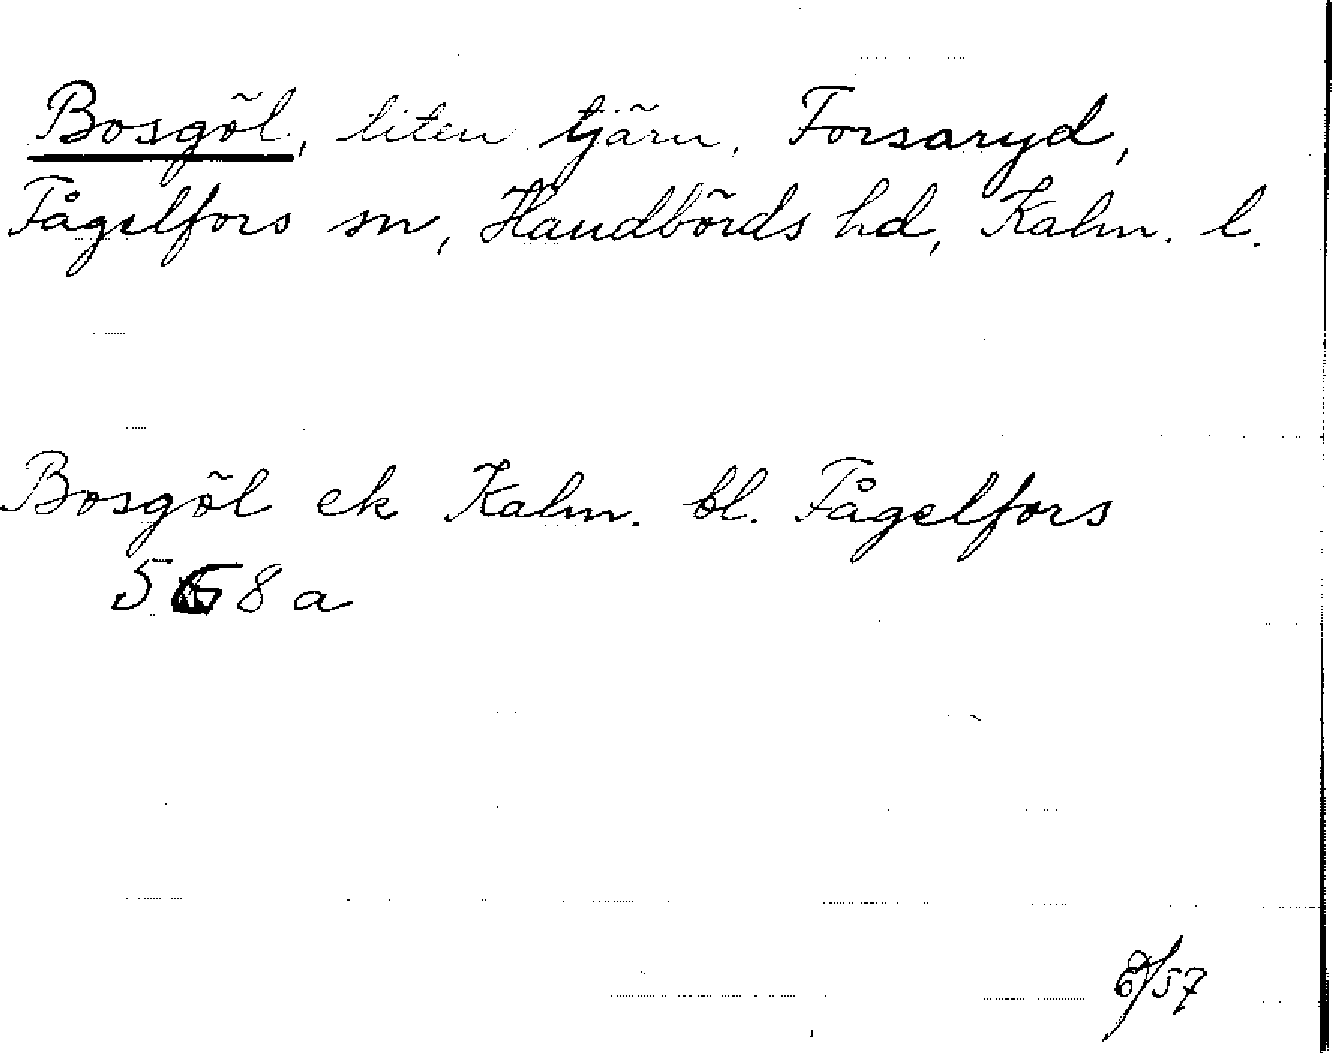 Bosgöl, liten tjärn, Forsaryd,
Fågelfors sn, Handbörds hd, Kalm. l.
Bosgöl ek Kalm. bl. Fågelfors
5G8a